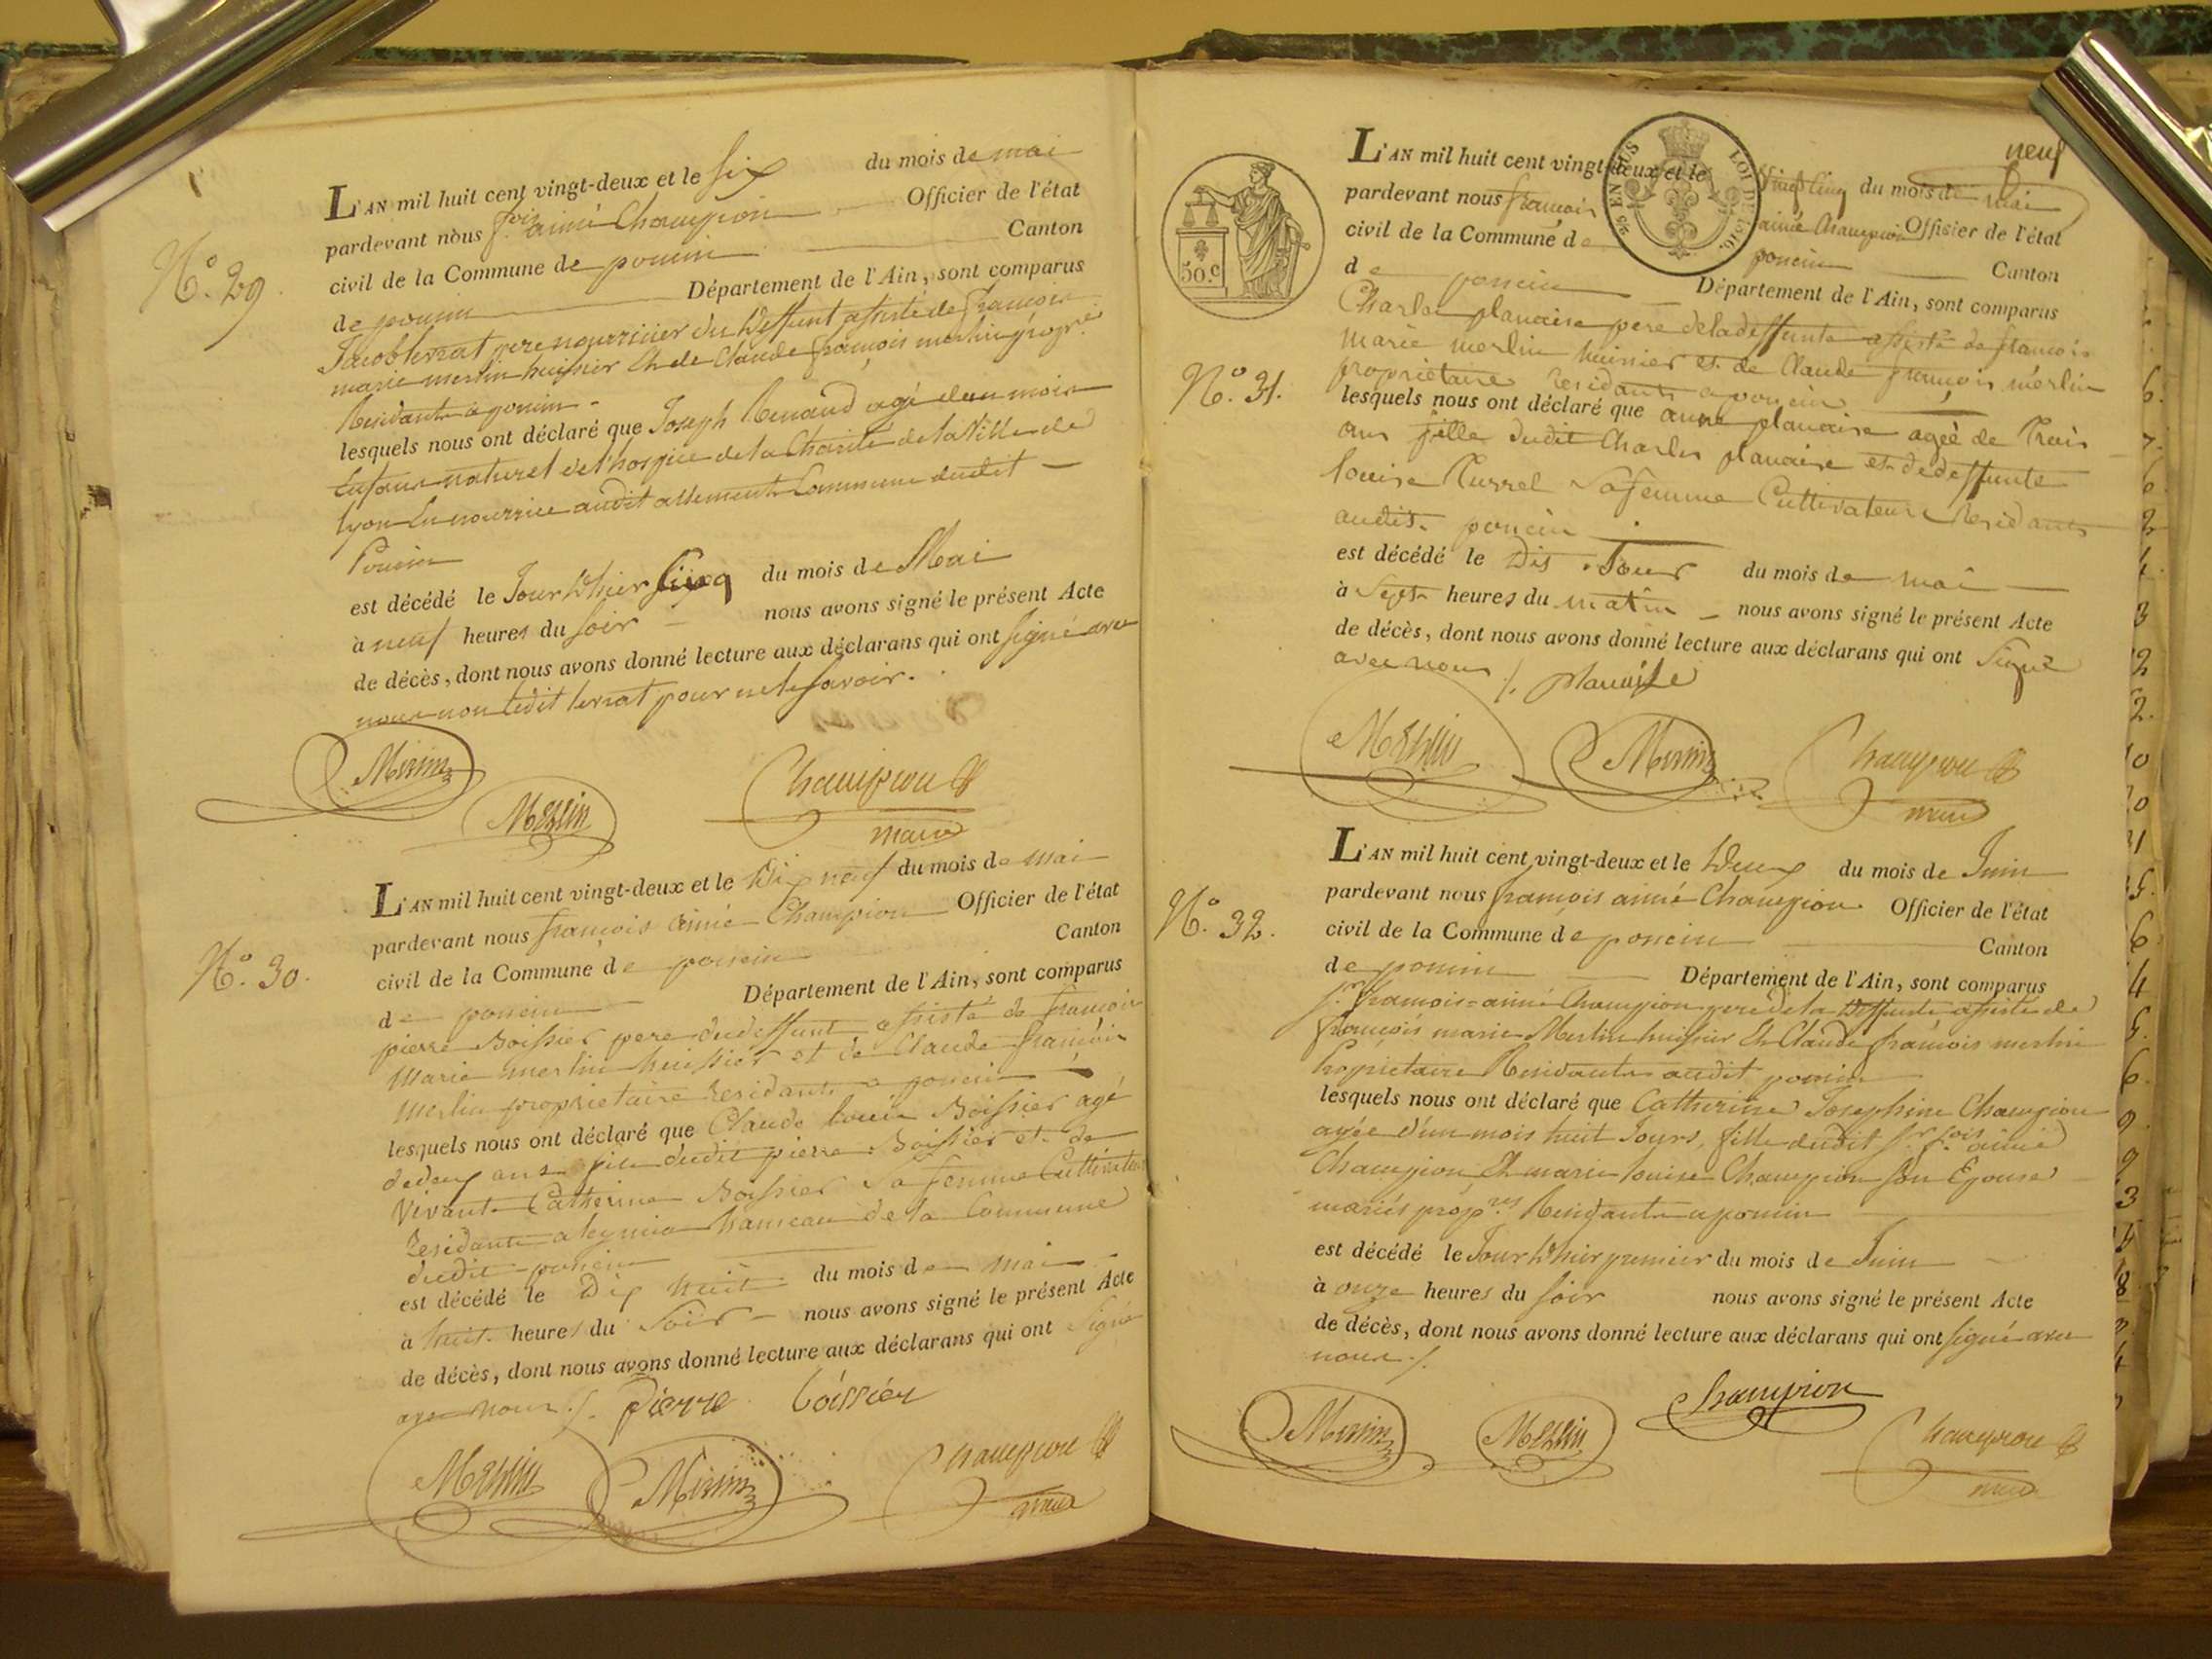 N.o 29
L'AN mil huit cent vingt-deux et le six du mois de mai
pardevant nous f.ois aimé Champion Officier de l'état
civil de la Commune de poncin Canton
de poncin Département de l'Ain, sont comparus
Jacob terrat pere nourricier du deffunt assisté de francois
marie merlin huissier Et de Claude françois merlin propre
Residants a poncin
lesquels nous ont déclaré que Joseph Renaud agé d'un mois
Enfant naturel de l'hospice de la Charité de la Ville de
lyon En nourrice audit allement Commune dudit
Poncin
est décédé le Jour d'hier Cinq du mois de Mai
à neuf heures du soir nous avons signé le présent Acte
de décès, dont nous avons donné lecture aux déclarans qui ont signé avec
nous non ledit terrat pour ne le savoir.
Merlin
Merlin
Champion
maire
N.o 30.
L'AN mil huit cent vingt-deux et le Dix neuf du mois de mai
pardevant nous francois aimé Champion Officier de l'état
civil de la Commune de poncin Canton
de poncin Département de l'Ain, sont comparus
pierre Boissier pere dudeffunt assisté de francois
Marie merlin huissier et de Claude françois
Merlin proprietaire residants a poncin
lesquels nous ont déclaré que Claude louis Boissier agé
de deux ans fils dudit pierre Boissier et de
Vivante Catherine Boissier Sa femme Cultivateurs
residants a hameau de la Commune
dudit poncin
est décédé le Dix huit du mois de mai
à huit heures du Soir nous avons signé le présent Acte
de décès, dont nous avons donné lecture aux déclarans qui ont Signé
avec nous ./. Pierre boissier
Merlin Merlin Champion
maire
neuf
50.c
EN SUS
LOI DE 1816.
L'AN mil huit cent vingt-deux et le Vingt Cinq du mois de Mai
pardevant nous francois aimé Champion Officier de l'état
civil de la Commune de poncin Canton
de poncin Département de l'Ain, sont comparus
Charles planaise pere de la deffunte assisté de francois
marie merlin huissier et de Claude françois merlin
N.o 31.
proprietaires residants a poncin
lesquels nous ont déclaré que anne planaise ageé de Trois
ans fille dudit Charles planaise et de deffunte
louise Sa femme Cultivateurs residants
audit poncin
est décédé le Dis Jour du mois de mai
à Sept heures du matin nous avons signé le présent Acte
de décès, dont nous avons donné lecture aux déclarans qui ont Signé
avec nous ./. planaise
Merlin Merlin Champion
maire
N.o 32.
L'AN mil huit cent vingt-deux et le Deux du mois de Juin
pardevant nous francois aimé Champion Officier de l'état
civil de la Commune de poncin Canton
de poncin Département de l'Ain, sont comparus
s.r francois=aimé Champion pere de la deffunte assisté de
françois marie Merlin huissier Et Claude françois merlin
Proprietaire Residants audit poncin
lesquels nous ont déclaré que Catherine Josephine Champion
agée d'un mois huit Jours, fille dudit s.r f.ois aimé
Champion Et marie louise Champion son Epouse
mariés prop.res Residants a poncin
est décédé le Jour d'hier premier du mois de Juin
à onze heures du soir nous avons signé le présent Acte
de décès, dont nous avons donné lecture aux déclarans qui ont signé avec
nous ./.
Merlin Merlin Champion Champion
maire